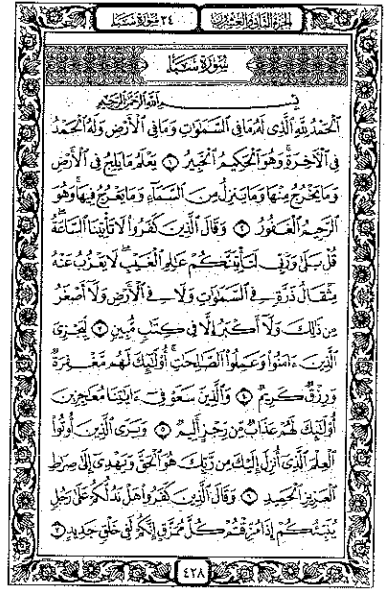 سورة سبإ ٣٤
الجزء الثاني والعشرون
سورة سبإ
بسم الله الرحمن الرحيم
الحمد لله الذى له ما فى السموات وما فى الأرض وله الحمد
فى الأخرة وهو الحكيم الخبير ١ يعلم ما يلج فى الأرض
وما يخرج منها وما ينزل من السماء وما يعرج فيها وهو
الرحيم الغفور ٢ وقال الذين كفروا لا تأتينا الساعة
قل بلى وربى لتأتينكم علم الغيب لا يعزب عنه
مثقال ذرة فى السموات ولا فى الأرض ولا أصغر
من ذلك ولا أكبر إلا فى كتب مبين ٣ ليجزى
الذين ءامنوا وعملوا الصلحت أولئك لهم مغفرة
ورزق كريم ٤ والذين سعو فى ءايتنا معجزين
أولئك لهم عذاب من رجز أليم ٥ ويرى الذين أوتوا
العلم الذى أنزل إليك من ربك هو الحق ويهدى إلى صرط
العزيز الحميد ٦ وقال الذين كفروا هل ندلكم على رجل
ينبئكم إذا مزقتم كل ممزق إنكم لفى خلق جديد ٧
٤٢٨